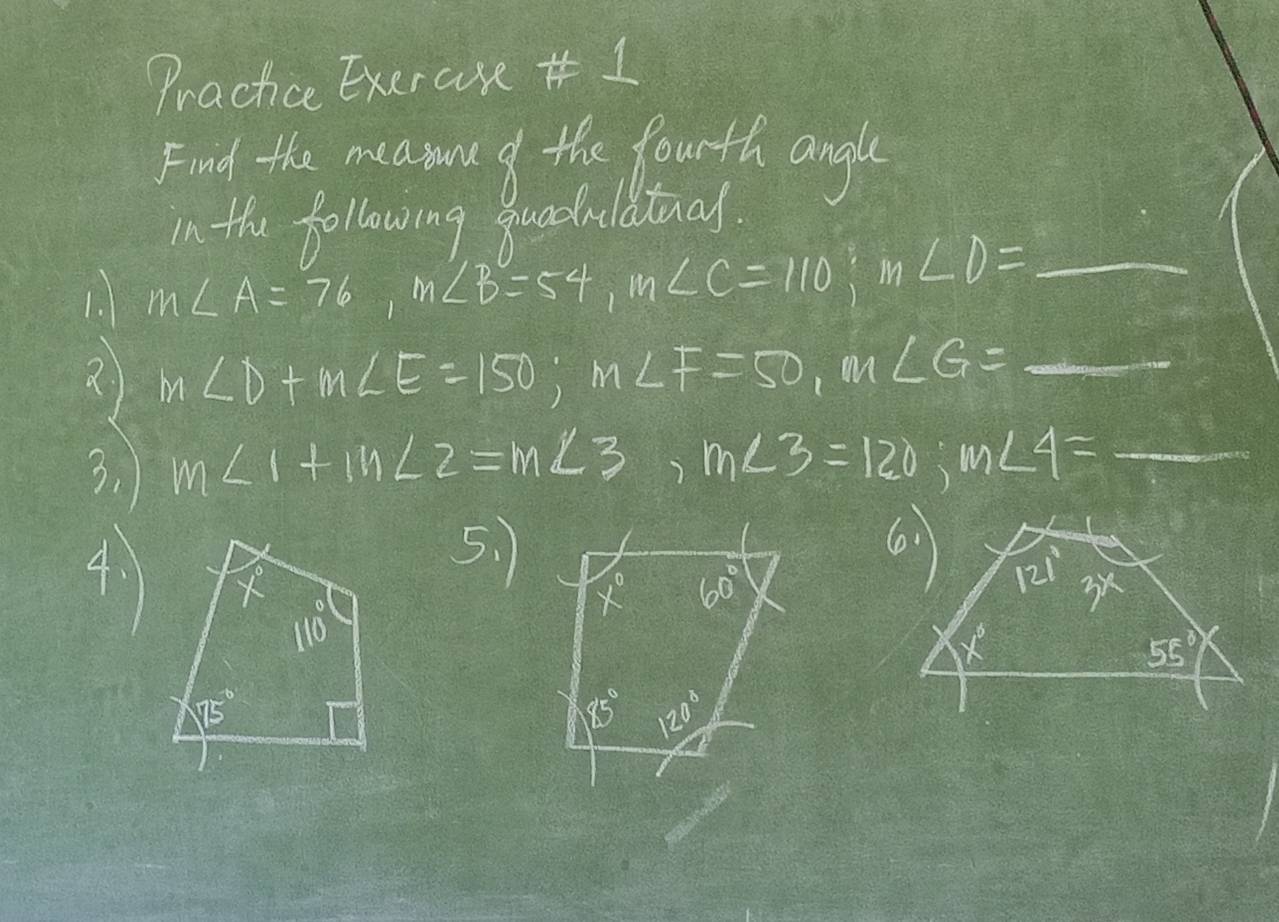 Practice Exercise # 1
Find the measure of the fourth angle
in the following quadrilateral.
1.) m∠A = 76, m∠B = 54, m∠C = 110; m∠D = ____
2.) m∠D + m∠E = 150; m∠F = 50, m∠G = ____
3.) m∠1 + m∠2 = m∠3, m∠3 = 120; m∠4 = ____
4.) x° 110° 75°
5.) x° 60° 85° 120°
6.) 121° 3x x° 55°